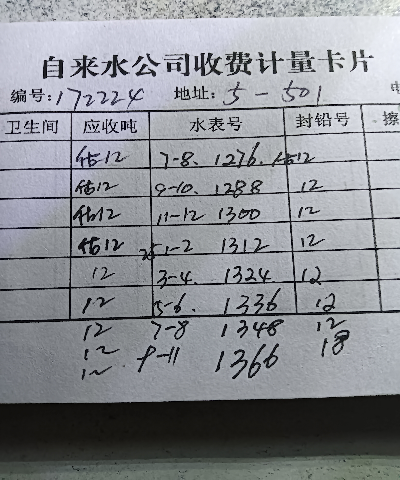 自来水公司收费计量卡片
编号:172224 地址:5-501 电
卫生间 应收吨 水表号 封铅号 擦
估12 7-8. 1276. 估12
估12 9-10. 1288 12
估12 11-12 1300 12
估12 25 1-2 1312 12
12 3-4. 1324 12
12 5-6. 1336 12
12 7-8 1348 12
12 9-11 1366 18
12